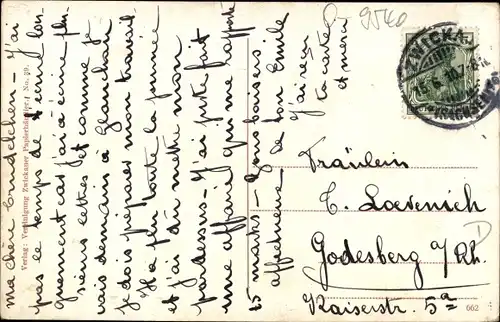 ma chère Trudelchen — J'ai
pas le temps de t'écrire lon-
guement car j'ai à écrire plu-
sieurs lettres et comme je
vais demain à Glauchau
je dois préparer mon travail.
Il a plu toute la journée
et j'ai dû mettre mon
pardessus — J'ai juste fait
une affaire qui me rapporte
15 marks — Bons baisers
affectueux de ton Emile
J'ai reçu
ta carte
et merci
Verlag: Vereinigung Zwickauer Papierhändler, No. 39.
9540
ZWICKAU
15.6.10.
(SACHSEN)
Fräulein
C. Loevenich
Godesberg a/Rh.
Kaiserstr. 5a
662